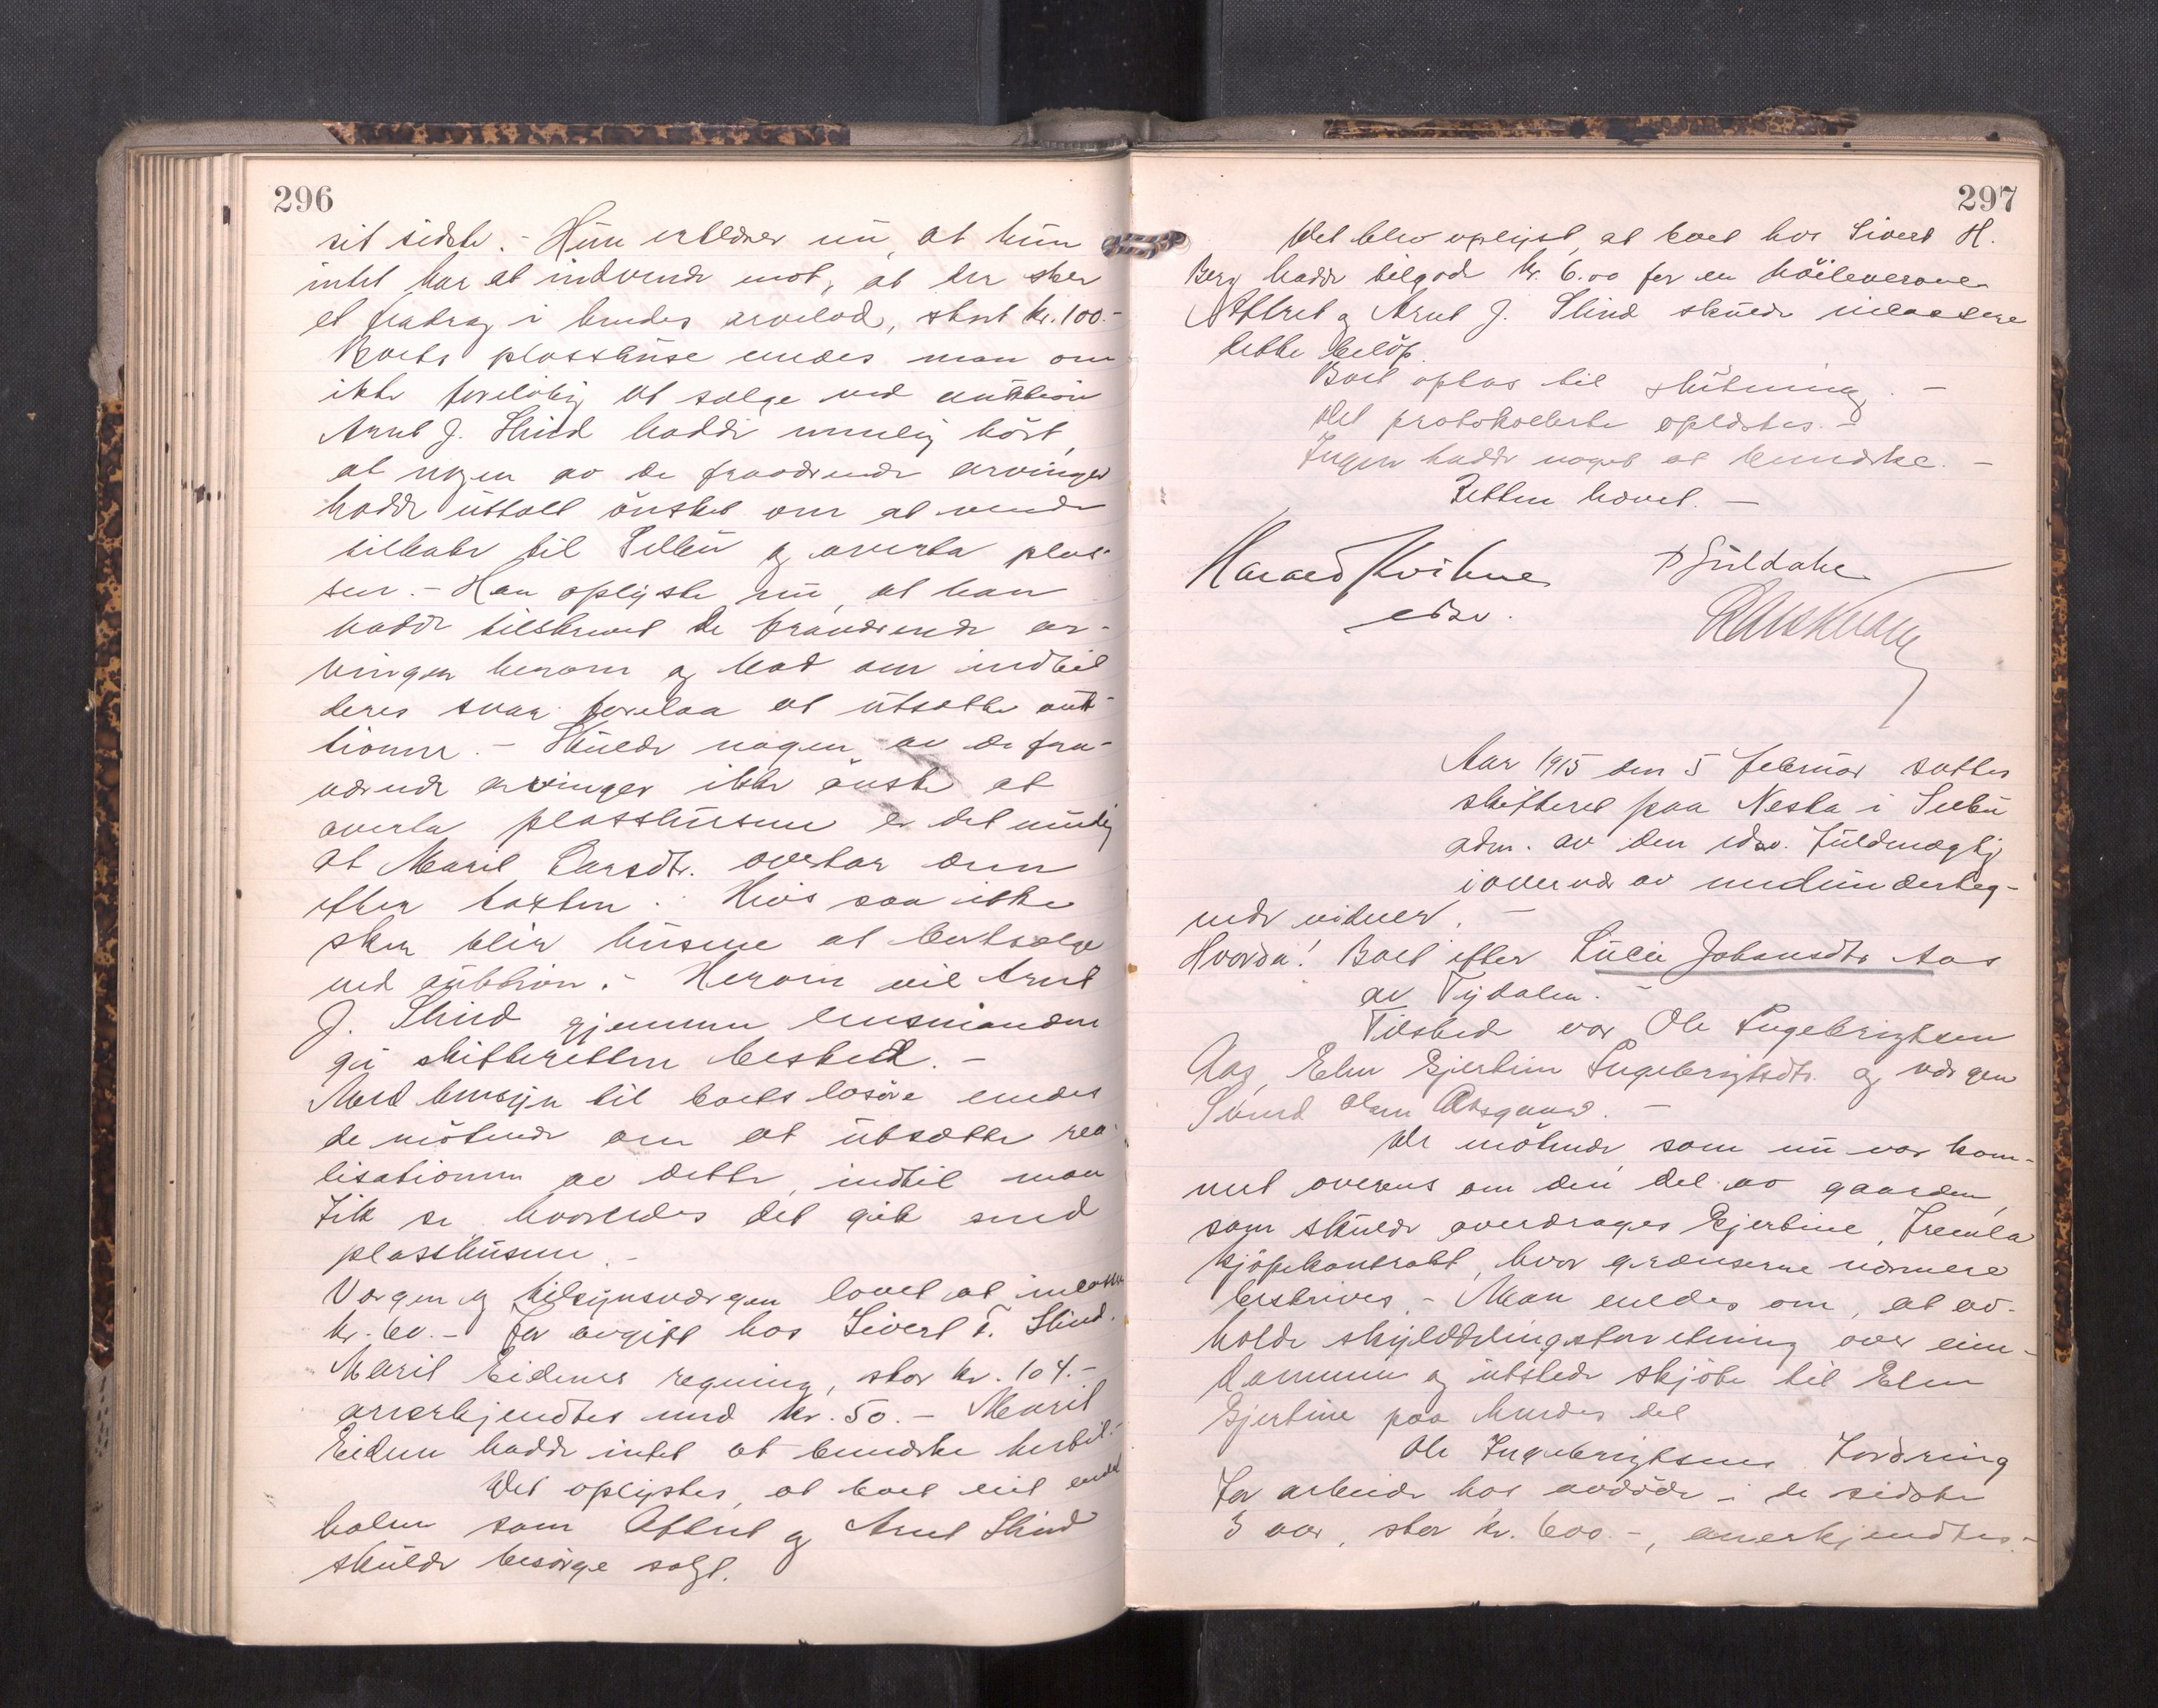 296
sit sidste. - Hun erklærer nu, at hun
intet har at indvende mot, at der sker
et fradrag i hendes arvelod, stort kr. 100.-
Boets plasshuse enedes man om
ikke foreløbig at sælge ved auktion
Arnt J. Slind hadde nemlig hört,
at nogen av de fraværende arvinger
hadde uttalt önsket om at vende
tilbake til Selbu og overta plas-
sen. - Han oplyste nu, at han
hadde tilskrevet de fraværende ar-
vinger herom og bad om indtil
deres svar forelaa at utsætte auk-
tionen. - Skulde nogen av de fra-
værende arvinger ikke önske at
overta plasshusene er det mulig
at Marit Larsdtr. overtar dem
efter taxten. Hvis saa ikke
sker blir husene at bortsælge
ved auktion. - Herom vil Arnt
J. Slind gjennem lensmanden
gi skifteretten besked. -
Med hensyn til boets lösöre enedes
de mötende om at utsætte rea-
lisationen av dette, indtil man
fik se hvorledes det gik med
plasshusene. -
Værgen og tilsynsværgen lovet at inkassere
kr. 60.- for avgift hos Sivert T. Slind.
Marit Eidens regning, stor kr. 104.-
anerkjendtes med kr. 50.- Marit
Eiden hadde intet at bemerke hertil.-
Det oplystes, at boet eiet endel
halm som Attret og Arnt Slind
skulde besörge solgt.
297
Det blev oplyst, at boet hos Sivert H.
Berg hadde tilgode kr. 6.00 for en höileverance
Attret og Arnt J. Slind skulde inkassere
dette belöp.
Boet optas til slutning. -
Det protokollerte oplæstes. -
Ingen hadde noget at bemerke. -
Retten hævet. -
Harald Kvikne
edsv.
Aar 1915 den 5 februar sattes
skifteret paa Nesta i Selbu
adm. av den edsv. fuldmægtig
i overvær av medunderteg-
nede vidner. -
Hvorda! Boet efter Lucie Johansdtr Aas
av Tydalen. -
Tilstede var Ole Ingebrigtsen
Aas, Elen Gjertine Ingebrigtsdtr. og værgen
Svend Olsen Aasgaard. -
De mötende som nu var kom-
met overens om den del av gaarden,
som skulde overdrages Gjertine, fremla
kjöpekontrakt, hvor grænserne nærmere
beskrives. - Man enedes om, at av-
holde skylddelingsforretning over eien-
dommen og utstede skjöte til Elen
Gjertine paa hendes del
Ole Ingebrigtsens fordring
for arbeide hos avdöde i de sidste
3 aar, stor kr. 600.-, anerkjendtes.-